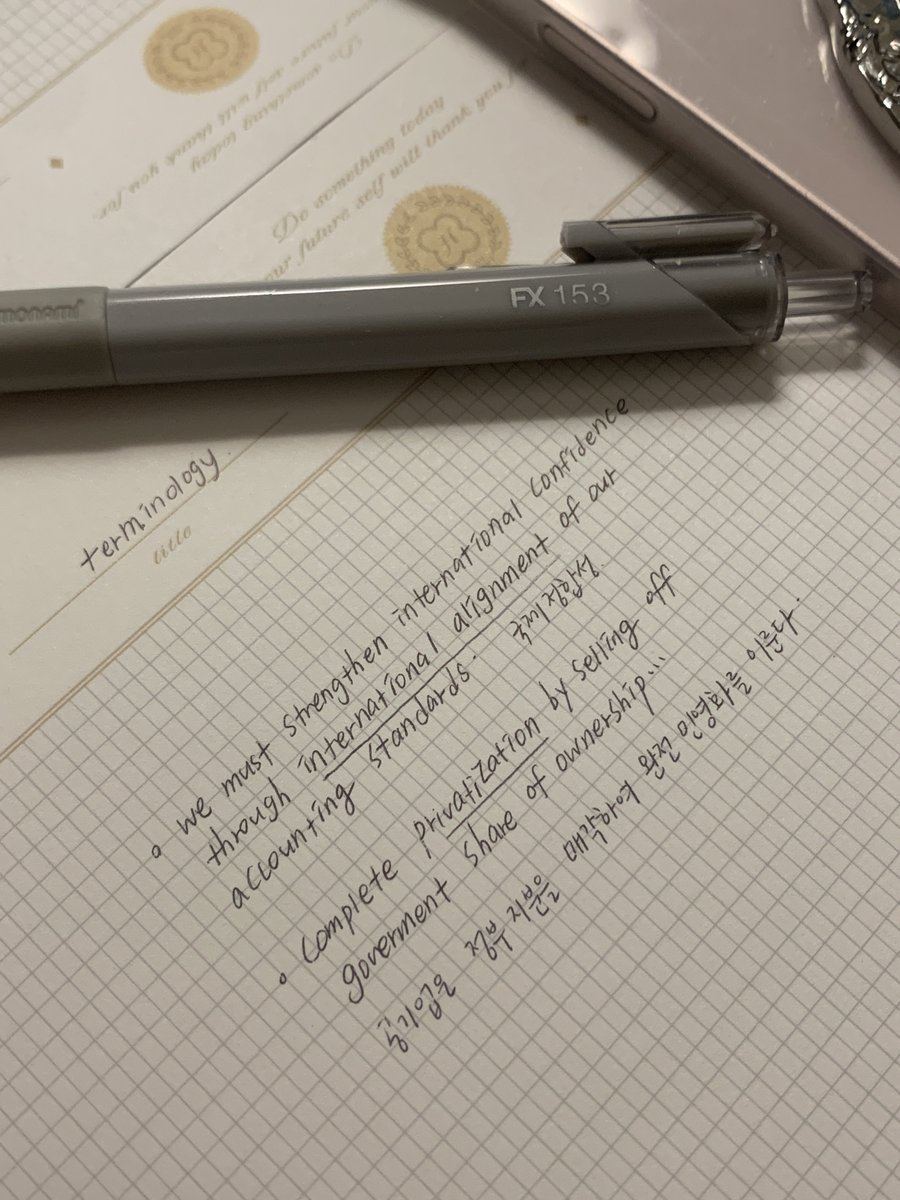 Do something today
future self will thank you for
Do something today
our future self will thank you f
monami
FX 153
terminology
title
• we must strengthen international confidence
through international alignment of our
accounting standards. 국제정합성
• complete privatization by selling off
goverment share of ownership...
공기업을 정부 지분을 매각하여 완전 민영화를 이룬다.